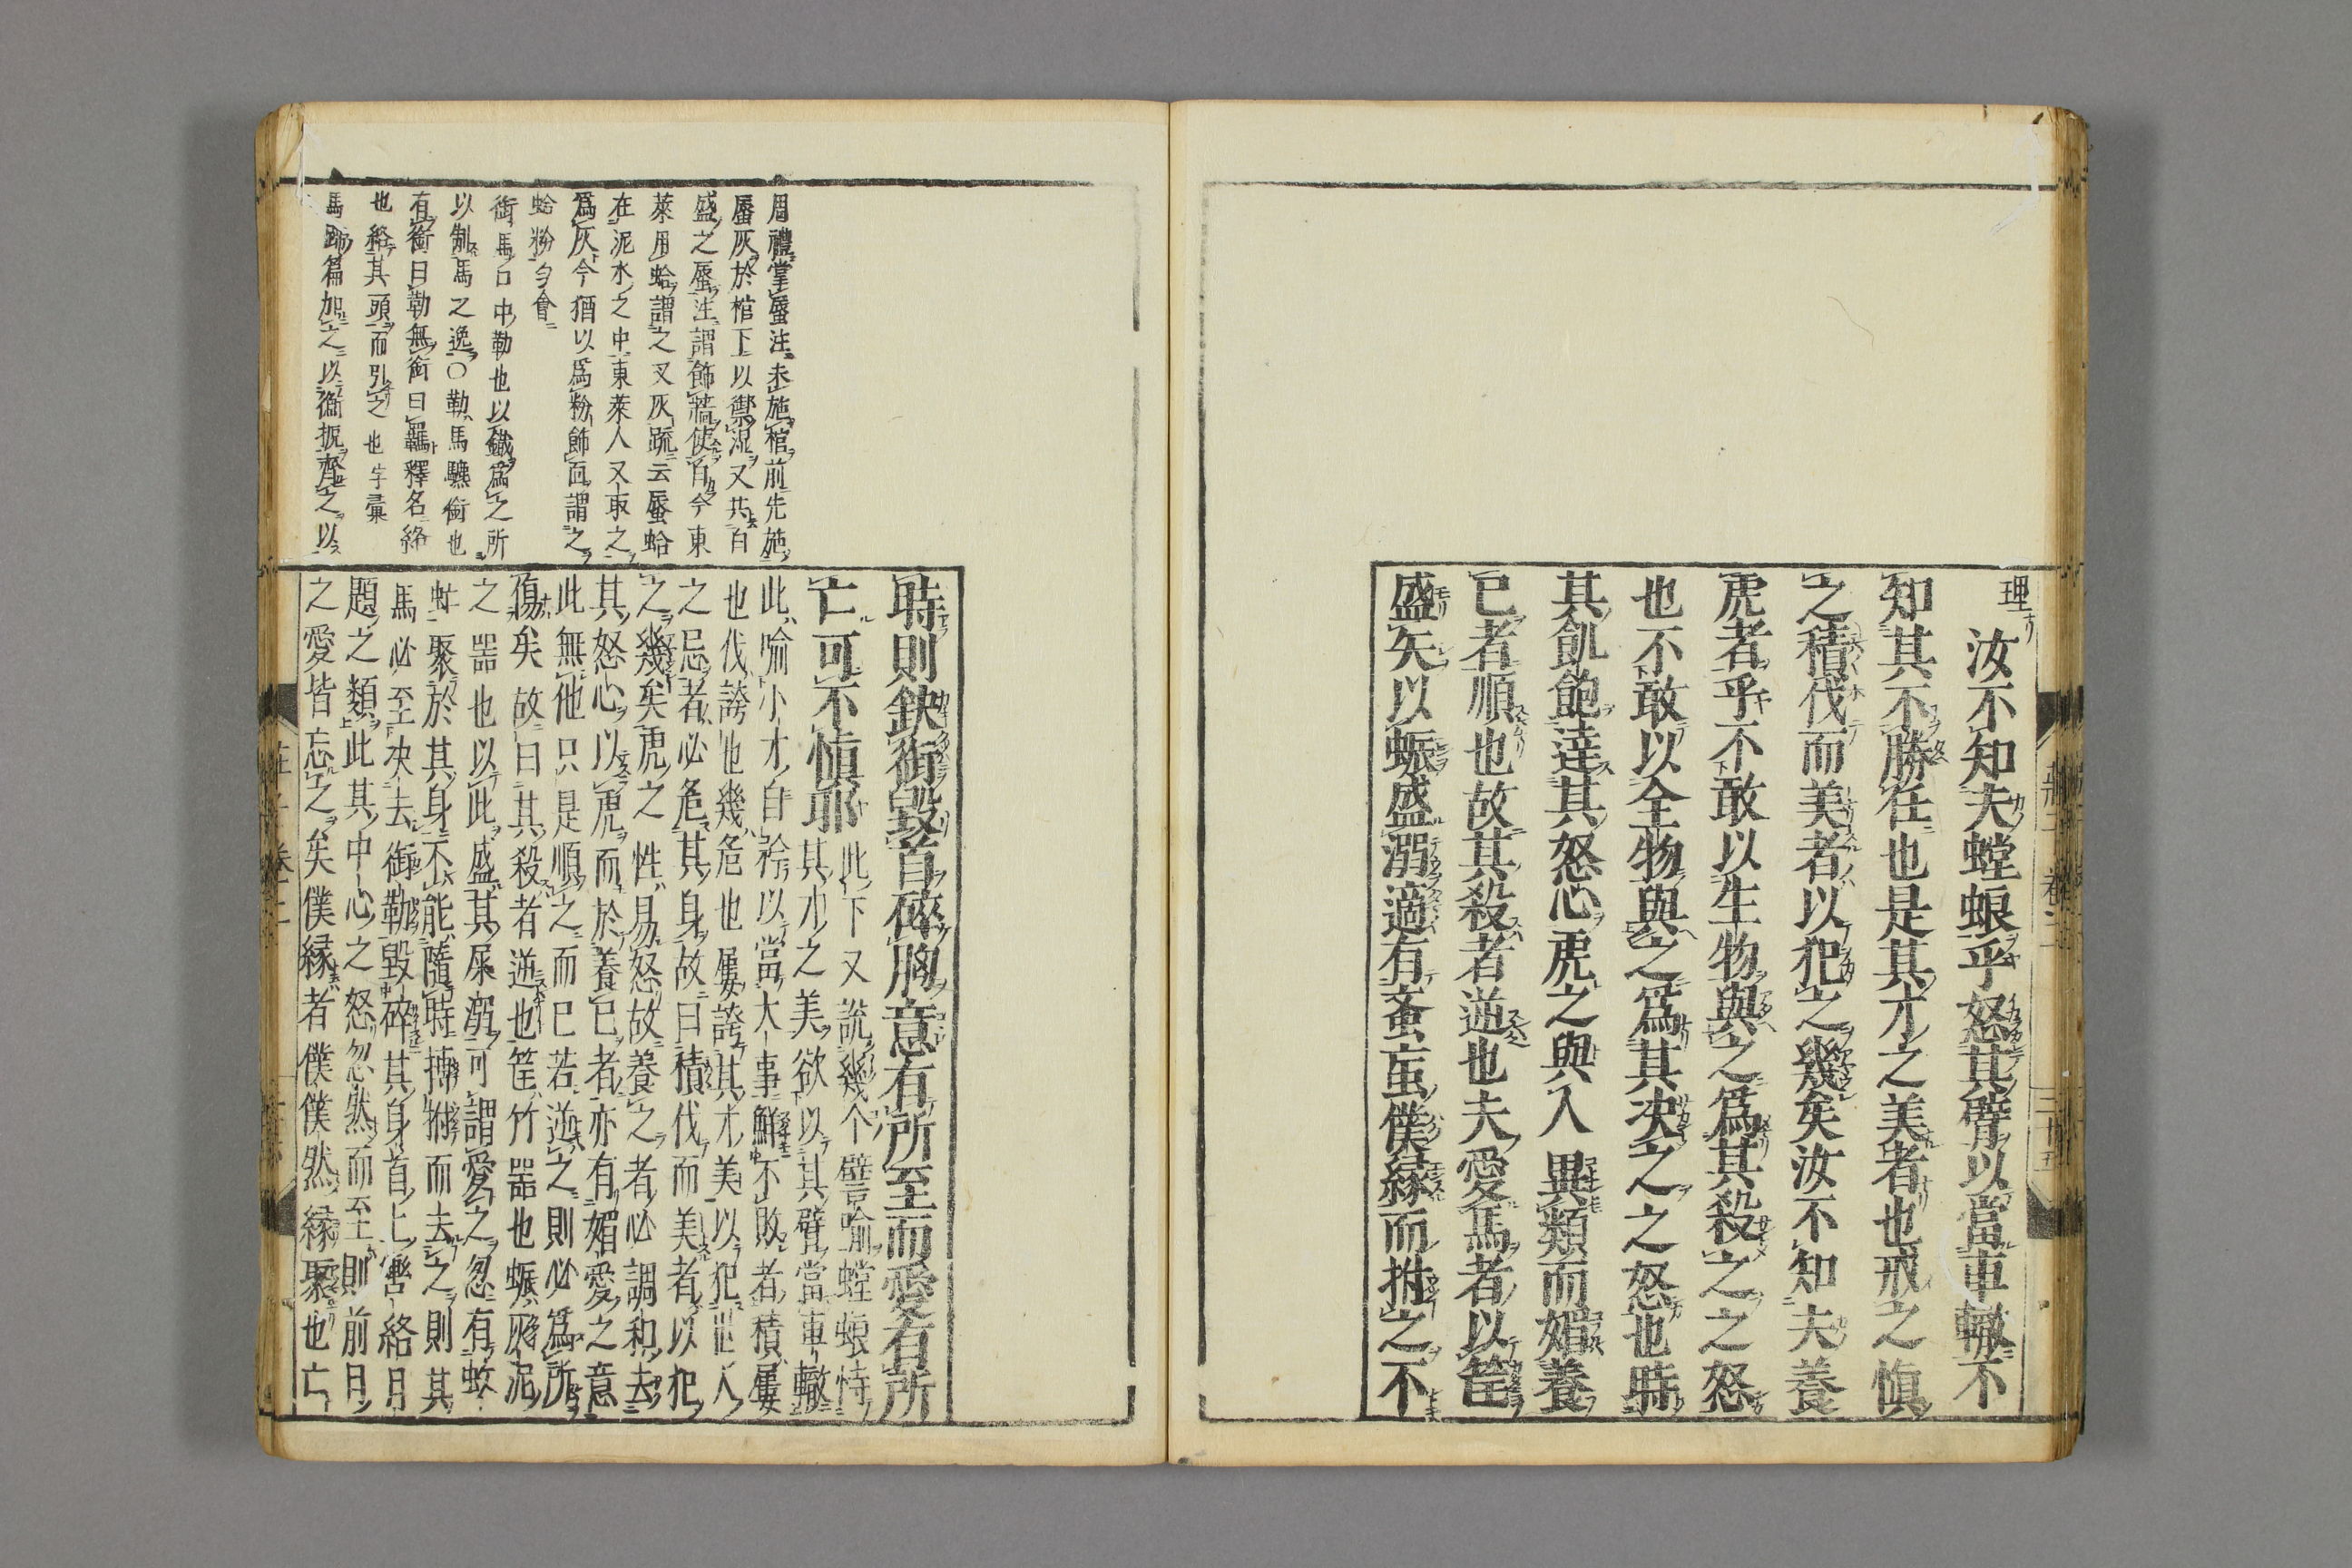 理
汝不知夫螳蜋乎怒其臂以當車轍不
知其不勝任也是其才之美者也戒之愼
之積伐而美者以犯之幾矣汝不知夫養
虎者乎不敢以生物與之爲其殺之之怒
也不敢以全物與之爲其決之之怒也時
其飢飽達其怒心虎之與入異類而媚養
已者順也故其殺者逆也夫愛馬者以筐
盛矢以蜄盛溺適有蚉䖟僕縁而拊之不
時則缺銜毀首碎胸意有所至而愛有所
亡可不愼耶此下又説幾个譬喻螳蜋恃
其才之美欲以其臂當車轍
此喻小才自矜以當大事鮮不敗者積屢
也伐誇也幾危也屢誇其才美以犯世人
之忌者必危其身故曰積伐而美者以犯
之幾矣虎之性易怒故養之者必調和去
其怒心以虎而於養已者亦有媚愛之意
此無他只是順之而已若逆之則必爲所
傷矣故曰其殺者逆也筐竹器也蜄灰泥
之器也以此盛其屎溺可謂愛之忽有蚊
虻聚於其身不能隨時拊而去之則其
馬必至決去銜勒毀碎其身首上轡絡月
題之類此其中心之怒忽然而至則前日
之愛皆忘之矣僕縁者僕僕然縁聚也亡
周禮掌蜃注未施棺前先施
蜃灰於棺下以禦湿又共白
盛之蜃注謂飾牆使白今東
萊用蛤謂之叉灰疏云蜃蛤
在泥水之中東萊人又取之
爲灰今猶以爲粉飾面謂之
蛤粉匀會
銜馬口中勒也以鐵爲之所
以制馬之逸〇勒馬驣銜也
有銜曰勒無銜曰羈釋名絡
也絡其頭而引之也字彙
馬蹄篇加之以衡扼齊之以